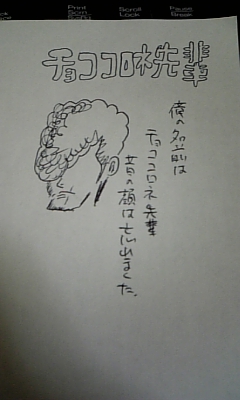 Print
Scrn
Sys
Scroll
Lock
Pause
Break
チョココロネ先輩
俺の名前は
チョココロネ先輩
昔の顔は忘れました。